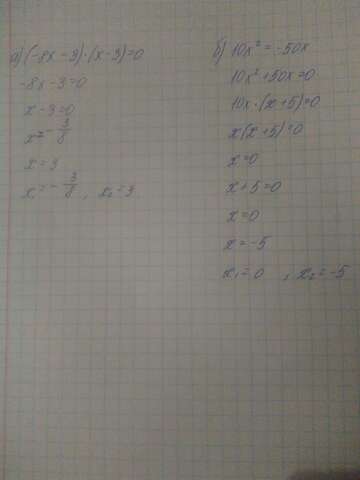 а) (-8x - 3) · (x - 3) = 0
-8x - 3 = 0
x - 3 = 0
x = - 3/8
x = 3
x₁ = - 3/8 , x₂ = 3
б) 10x² = -50x
10x² + 50x = 0
10x · (x + 5) = 0
x(x + 5) = 0
x = 0
x + 5 = 0
x = 0
x = -5
x₁ = 0 , x₂ = -5